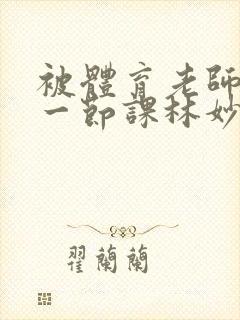 被體育老師
一節課林妙
翟蘭蘭